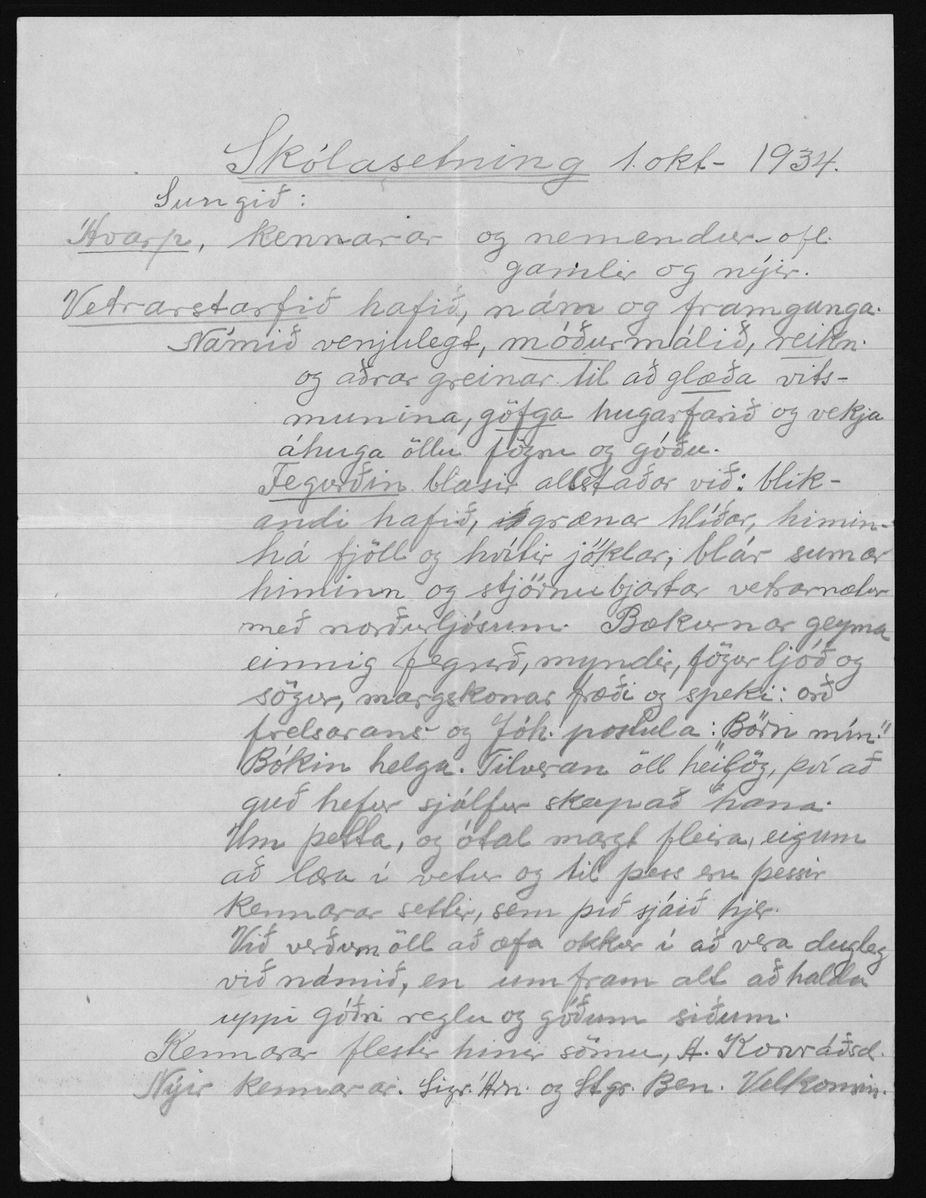 Skólasetning 1. okt - 1934.
Sungið:
Ávarp, kennarar og nemendur - ofl.
gamlir og nýir.
Vetrarstarfið hafið, nám og framganga.
Námið venjulegt, móðurmálið, reikn.
og aðrar greinar til að glæða vits-
munina, göfga hugarfarið og vekja
áhuga öllu fögru og góðu.
Fegurðin blasir allstaðar við: blik-
andi hafið, grænar hlíðar, himin-
há fjöll og hvítir jöklar; blár sumar
himinn og stjörnubjartar vetrarnætur
með norðurljósum. Bækurnar geyma
einnig fegurð, myndir, fögur ljóð og
sögur, margskonar fræði og speki: orð
frelsarans og Jóh. postula: Börn mín!"
Bókin helga. Tilveran öll heilög, því að
guð hefur sjálfur skapað hana.
Um þetta, og ótal margt fleira, eigum
að læra í vetur og til þess eru þessir
kennarar settir, sem þið sjáið hjer.
Við verðum öll að æfa okkur í að vera dugleg
við námið, en um fram alt að halda
uppi góðri reglu og góðum siðum.
Kennarar flestir hinir sömu, A. Konráðsd.
Nýir kennarar. Sigr. Árn. og Stgr. Ben. Velkomin.